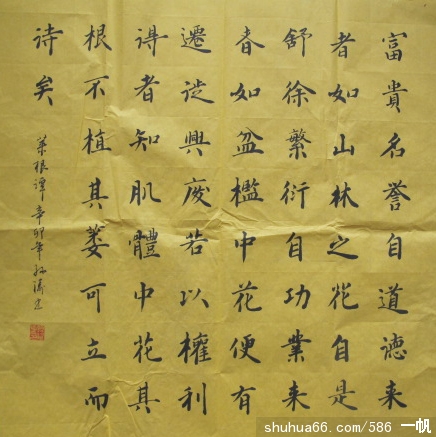 富貴名譽自道德来
者如山林之花自是
舒徐繁衍自功業来
者如盆檻中花便有
遷徙興廢若以權利
得者知肌體中花其
根不植其萎可立而
待矣
菜根譚 辛卯年
shuhua66.com/586 一帆